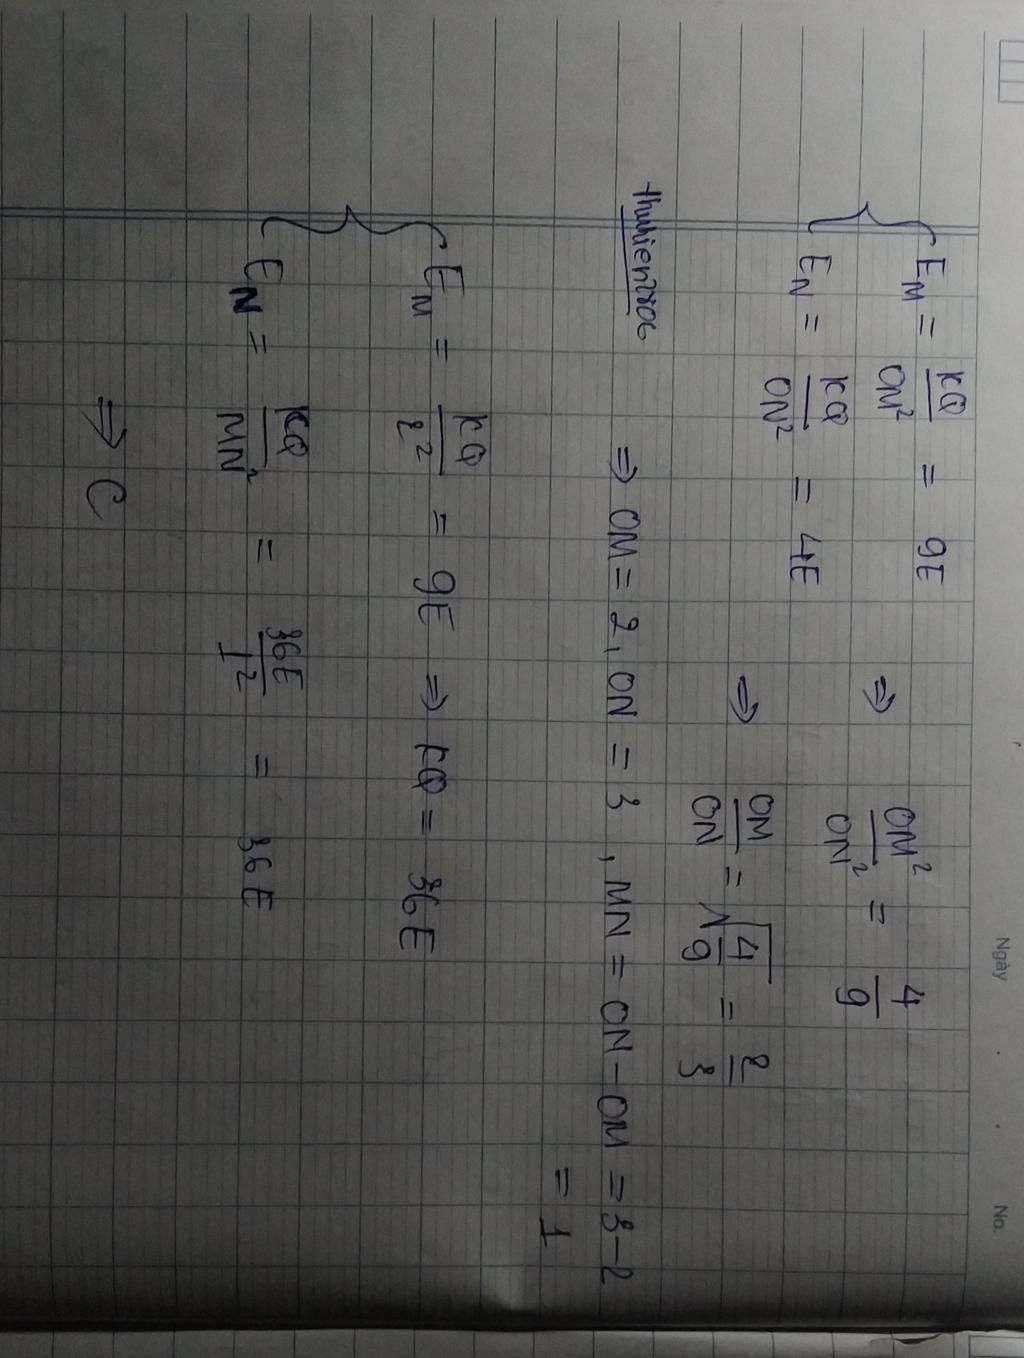 Ngày No.
E_M = KQ/ON² = 9E ⇒ OM²/ON² = 4/9
E_N = KQ/ON² = 4E ⇒ OM/ON = √(4/9) = 2/3
thuhien2206 ⇒ OM = 2, ON = 3, MN = ON - OM = 3 - 2
= 1
E_M = KQ/2² = 9E ⇒ KQ = 36E
E_N = KQ/MN² = 36E/1² = 36E
⇒ C